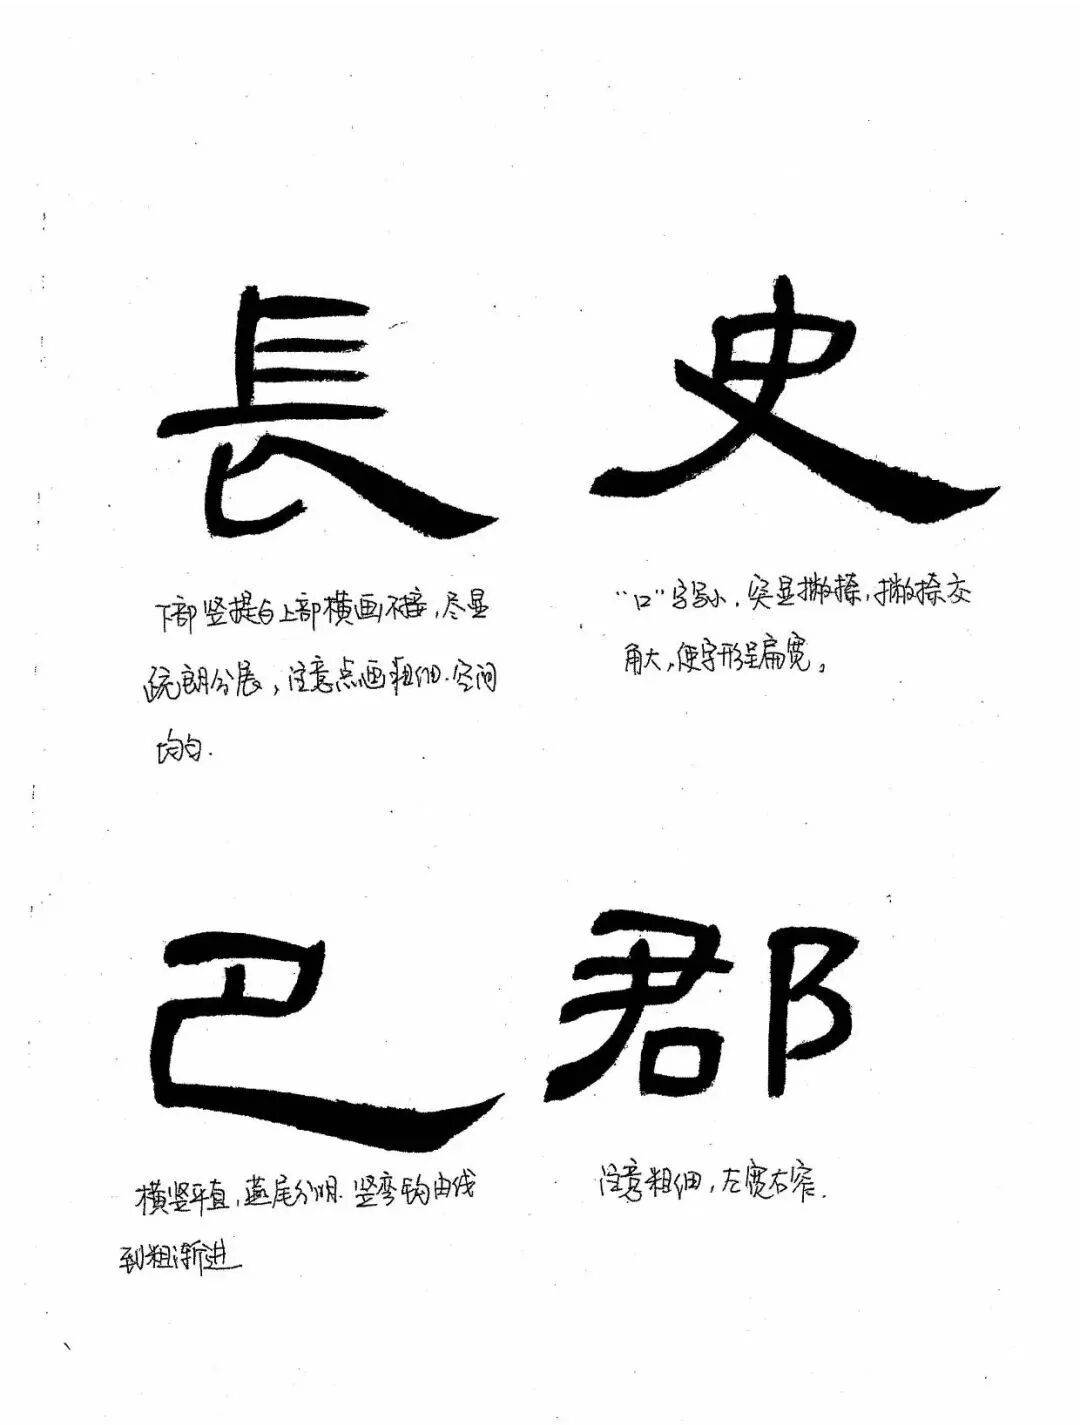 長
史
下部竖提与上部横画不接,尽显
疏朗分展,注意点画粗细.空间
均匀.
"口"字写小,突显撇捺,撇捺交
角大,使字形呈扁宽。
巴
郡
横竖平直,燕尾分明.竖弯钩由浅
到粗渐进
注意粗细,左宽右窄.